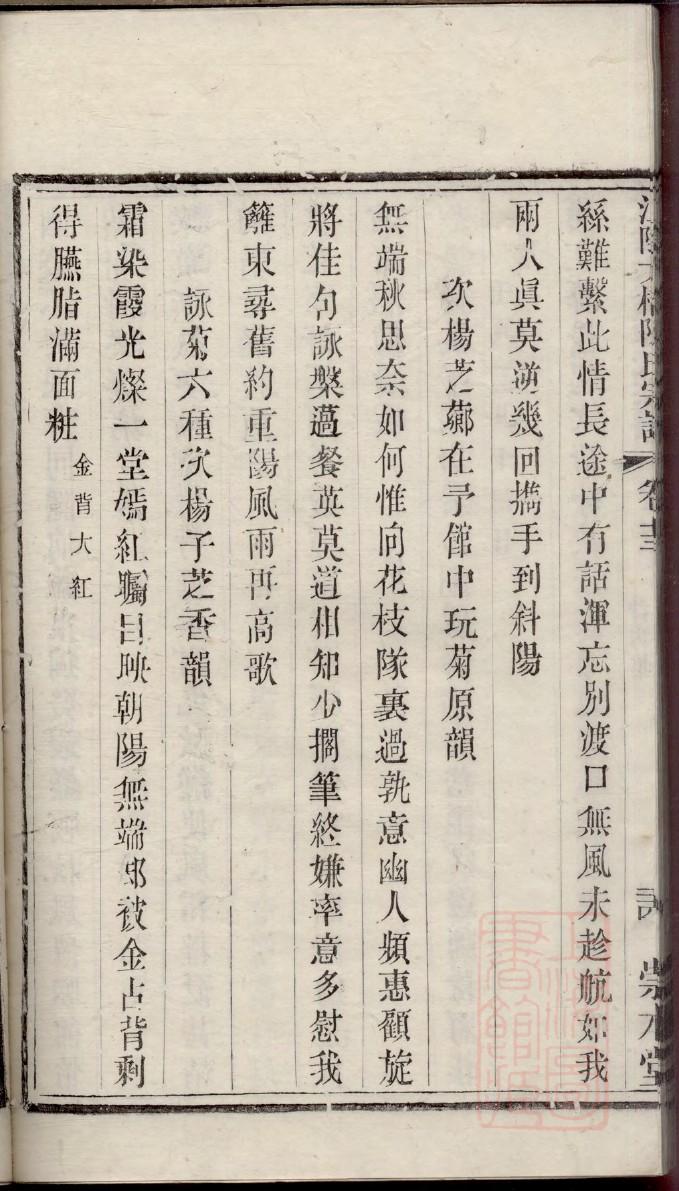 絲難繫此情長途中有話渾忘別渡口無風未趁航如我
兩人眞莫逆幾回擕手到斜陽
次楊芝薌在予館中玩菊原韻
無端秋思奈如何惟向花枝隊裏過孰意幽人頻惠顧旋
將佳句詠槃薖餐英莫道相知少擱筆終嫌率意多慰我
籬東尋舊約重陽風雨再高歌
詠菊六種次楊子芝香韻
霜染霞光燦一堂嫣紅矚目映朝陽無端郤被金占背剩
得臙脂滿面粧 金背大紅
陳氏宗譜 卷 崇 堂